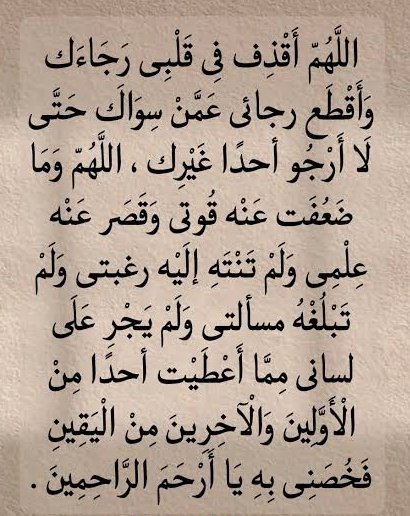 اللَّهُمّ أَقْذِف فِي قَلْبِى رَجَاءَك
وَأَقْطَع رجائى عَمَّنْ سِوَاكَ حَتَّى
لَا أَرْجُو أحدًا غَيْرِك ، اللَّهُمّ وَمَا
ضَعُفَت عَنْه قُوتى وَقَصَر عَنْه
عِلْمِى وَلَمْ تَنْتَهِ إلَيْه رغبتى وَلَمْ
تَبْلُغْهُ مسألتى وَلَمْ يَجْرِ عَلَى
لسانى مِمَّا أَعْطَيْت أحدًا مِنْ
الْأَوَّلِينَ وَالْآخِرِينَ مِنْ الْيَقِينِ
فَخُصَنِى بِهِ يَا أَرْحَمَ الرَّاحِمِينَ .